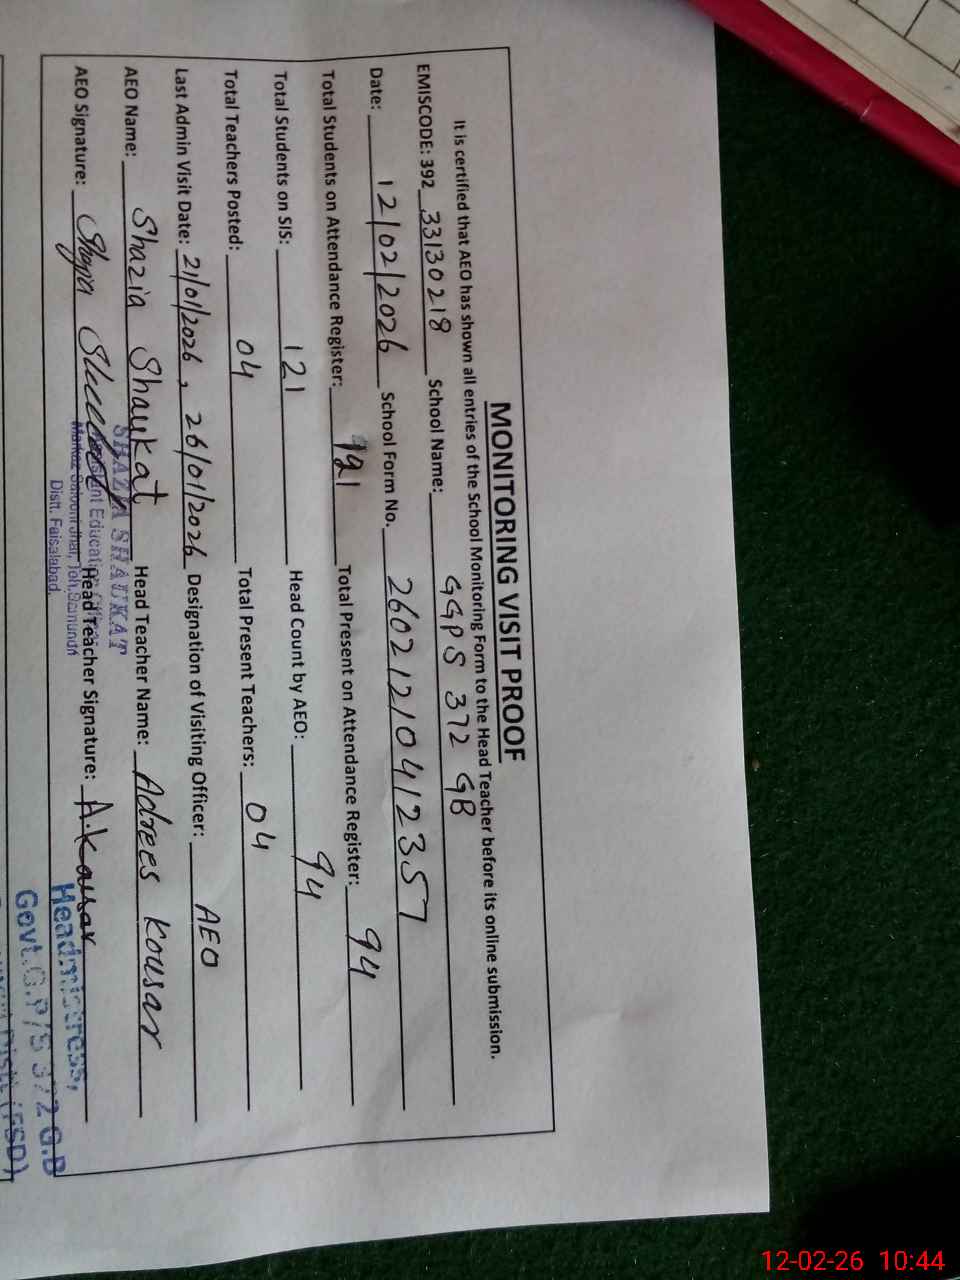 MONITORING VISIT PROOF
It is certified that AEO has shown all entries of the School Monitoring Form to the Head Teacher before its online submission.
EMISCODE: 392 33130218 School Name: GGPS 372 GB
Date: 12/02/2026 School Form No. 26021210412357
Total Students on Attendance Register: 121 Total Present on Attendance Register: 94
Total Students on SIS: 121 Head Count by AEO: 94
Total Teachers Posted: 04 Total Present Teachers: 04
Last Admin Visit Date: 21/01/2026, 26/01/2026 Designation of Visiting Officer: AEO
AEO Name: Shazia Shaukat Head Teacher Name: Adrees Kousar
AEO Signature: Head Teacher Signature: A.Kousar
SHAZIA SHAUKAT
Assistant Education Officer
Distt. Faisalabad.
Headmistress,
Govt.G.P/S 372 G.B
Distt; (FSD)
12-02-26 10:44